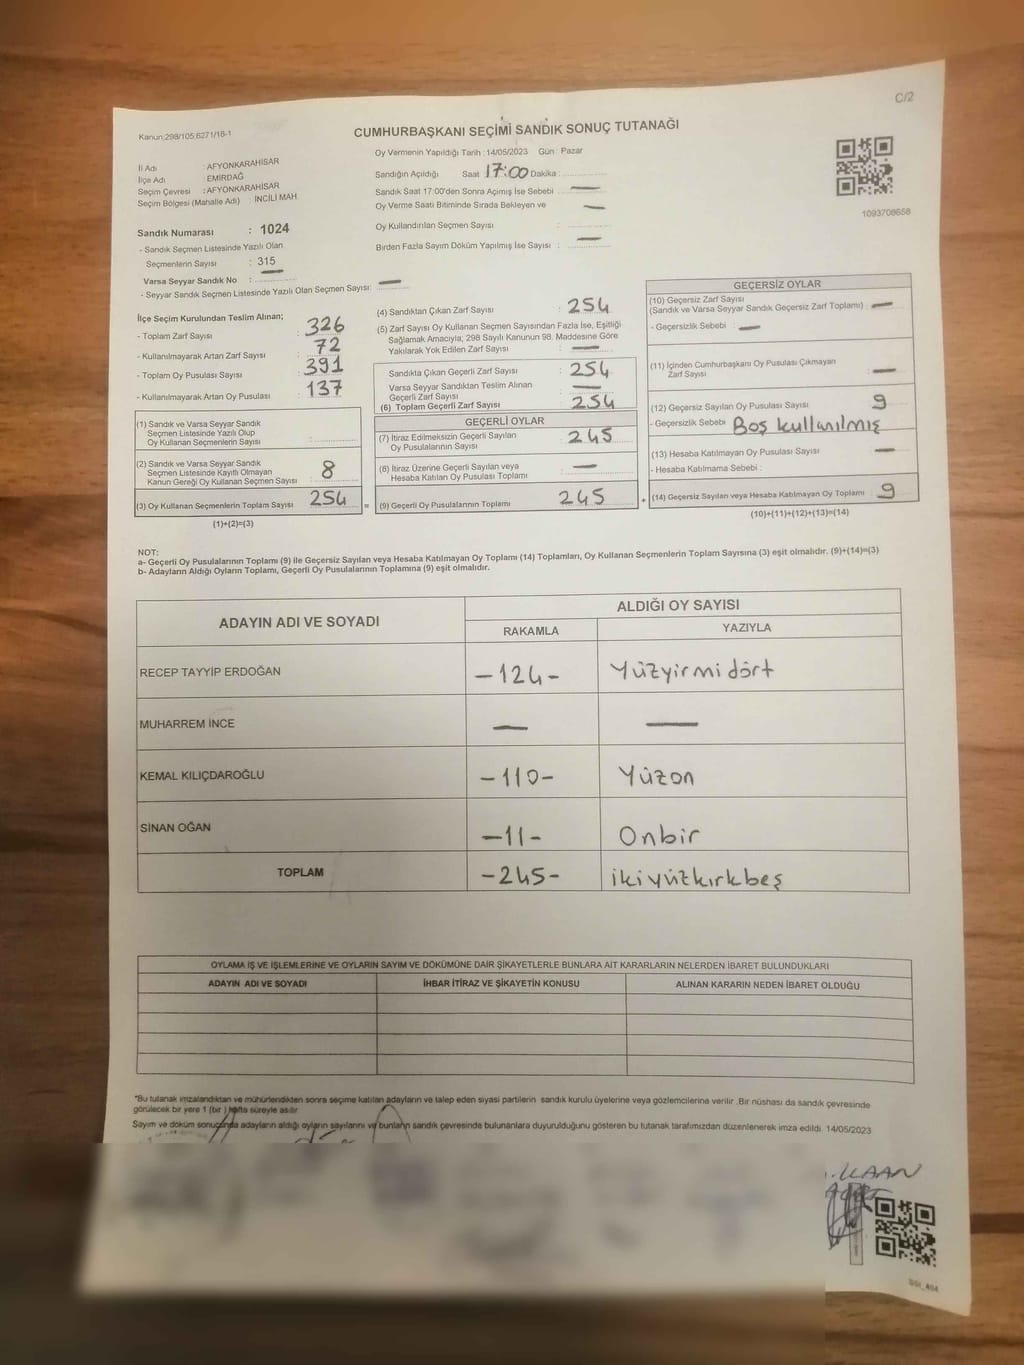 C/2
Kanun:298/105,6271/18-1
CUMHURBAŞKANI SEÇİMİ SANDIK SONUÇ TUTANAĞI
İl Adı : AFYONKARAHİSAR
İlçe Adı : EMİRDAĞ
Seçim Çevresi : AFYONKARAHİSAR
Seçim Bölgesi (Mahalle Adı) : İNCİLİ MAH
Oy Vermenin Yapıldığı Tarih :14/05/2023 Gün : Pazar
Sandığın Açıldığı Saat 17:00 Dakika :
Sandık Saat 17:00'den Sonra Açımış İse Sebebi : —
Oy Verme Saati Bitiminde Sırada Bekleyen ve —
Oy Kullandırılan Seçmen Sayısı :
Birden Fazla Sayım Döküm Yapılmış İse Sayısı : —
1093708658
Sandık Numarası : 1024
- Sandık Seçmen Listesinde Yazılı Olan
Seçmenlerin Sayısı : 315
Varsa Seyyar Sandık No : —
- Seyyar Sandık Seçmen Listesinde Yazılı Olan Seçmen Sayısı: —
İlçe Seçim Kurulundan Teslim Alınan;
- Toplam Zarf Sayısı : 326
- Kullanılmayarak Artan Zarf Sayısı : 72
- Toplam Oy Pusulası Sayısı : 391
- Kullanılmayarak Artan Oy Pusulası : 137
(1) Sandık ve Varsa Seyyar Sandık
Seçmen Listesinde Yazılı Olup
Oy Kullanan Seçmenlerin Sayısı :
(2) Sandık ve Varsa Seyyar Sandık
Seçmen Listesinde Kayıtlı Olmayan
Kanun Gereği Oy Kullanan Seçmen Sayısı : 8
(3) Oy Kullanan Seçmenlerin Toplam Sayısı 254 =
(1)+(2)=(3)
(4) Sandıktan Çıkan Zarf Sayısı : 254
(5) Zarf Sayısı Oy Kullanan Seçmen Sayısından Fazla İse, Eşitliği
Sağlamak Amacıyla; 298 Sayılı Kanunun 98. Maddesine Göre
Yakılarak Yok Edilen Zarf Sayısı : —
Sandıkta Çıkan Geçerli Zarf Sayısı : 254
Varsa Seyyar Sandıktan Teslim Alınan
Geçerli Zarf Sayısı : —
(6) Toplam Geçerli Zarf Sayısı : 254
GEÇERLİ OYLAR
(7) İtiraz Edilmeksizin Geçerli Sayılan
Oy Pusulalarının Sayısı : 245
(8) İtiraz Üzerine Geçerli Sayılan veya
Hesaba Katılan Oy Pusulası Toplamı : —
(9) Geçerli Oy Pusulalarının Toplamı : 245 +
GEÇERSİZ OYLAR
(10) Geçersiz Zarf Sayısı
(Sandık ve Varsa Seyyar Sandık Geçersiz Zarf Toplamı) : —
- Geçersizlik Sebebi : —
(11) İçinden Cumhurbaşkanı Oy Pusulası Çıkmayan
Zarf Sayısı : —
(12) Geçersiz Sayılan Oy Pusulası Sayısı : 9
- Geçersizlik Sebebi : Boş kullanılmış
(13) Hesaba Katılmayan Oy Pusulası Sayısı : —
- Hesaba Katılmama Sebebi :
(14) Geçersiz Sayılan veya Hesaba Katılmayan Oy Toplamı : 9
(10)+(11)+(12)+(13)=(14)
NOT:
a- Geçerli Oy Pusulalarının Toplamı (9) ile Geçersiz Sayılan veya Hesaba Katılmayan Oy Toplamı (14) Toplamları, Oy Kullanan Seçmenlerin Toplam Sayısına (3) eşit olmalıdır. (9)+(14)=(3)
b- Adayların Aldığı Oyların Toplamı, Geçerli Oy Pusulalarının Toplamına (9) eşit olmalıdır.
ADAYIN ADI VE SOYADI ALDIĞI OY SAYISI
RAKAMLA YAZIYLA
RECEP TAYYİP ERDOĞAN -124- Yüzyirmidört
MUHARREM İNCE — —
KEMAL KILIÇDAROĞLU -110- Yüzon
SİNAN OĞAN -11- Onbir
TOPLAM -245- ikiyüzkırkbeş
OYLAMA İŞ VE İŞLEMLERİNE VE OYLARIN SAYIM VE DÖKÜMÜNE DAİR ŞİKAYETLERLE BUNLARA AİT KARARLARIN NELERDEN İBARET BULUNDUKLARI
ADAYIN ADI VE SOYADI İHBAR İTİRAZ VE ŞİKAYETİN KONUSU ALINAN KARARIN NEDEN İBARET OLDUĞU
*Bu tutanak imzalandıktan ve mühürlendikten sonra seçime katılan adayların ve talep eden siyasi partilerin sandık kurulu üyelerine veya gözlemcilerine verilir .Bir nüshası da sandık çevresinde
görülecek bir yere 1 (bir ) hafta süreyle asılır
Sayım ve döküm sonucunda adayların aldığı oyların sayılarını ve bunların sandık çevresinde bulunanlara duyurulduğunu gösteren bu tutanak tarafımızdan düzenlenerek imza edildi. 14/05/2023